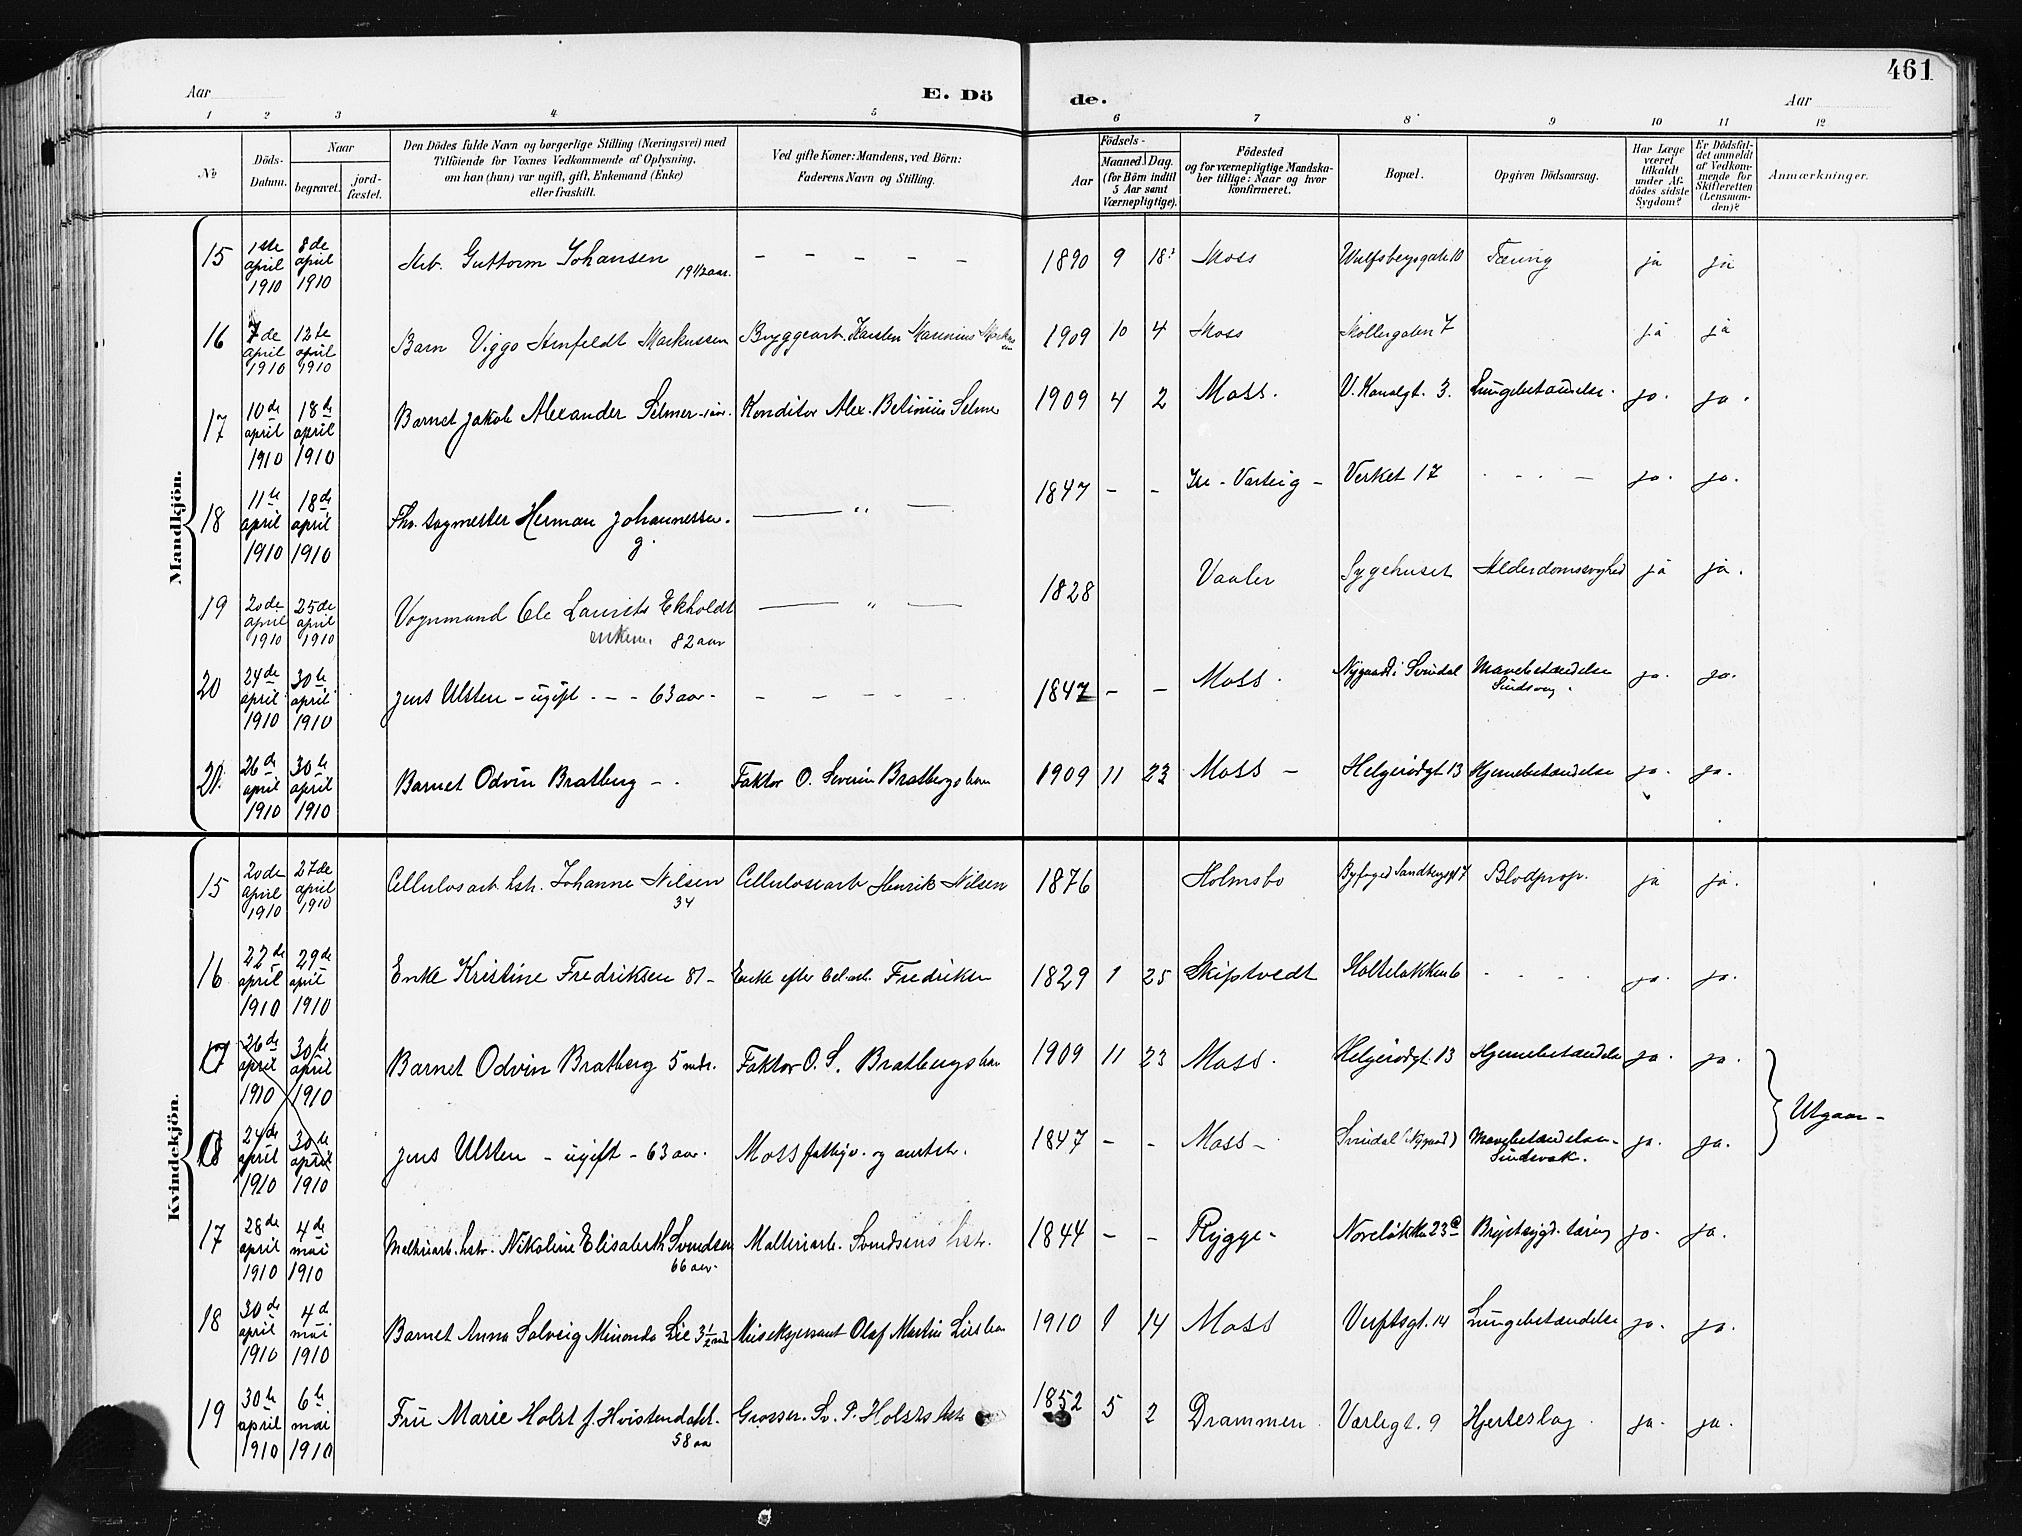 461
Aar
E. Dö
de.
Aar
1 2 3 4 5 6 7 8 9 10 11 12
No
Döds-Datum.
Naar
begravet.
jord-fæstet.
Den Dödes fulde Navn og borgerlige Stilling (Næringsvei) med
Tilföiende for Voxnes Vedkommende af Oplysning,
om han (hun) var ugift, gift, Enkemand (Enke)
eller fraskilt.
Ved gifte Koner: Mandens, ved Börn:
Faderens Navn og Stilling.
Födsels-
Aar
Maaned. Dag.
(for Börn indtil
5 Aar samt
Værnepligtige).
Födested
og for værnepligtige Mandska-
ber tillige: Naar og hvor
konfirmeret.
Bopæl.
Opgiven Dödsaarsag.
Har Læge
været
tilkaldt
under Af-
dödes sidste
Sygdom?
Er Dödsfal-
det anmeldt
af Vedkom-
mende for
Skifteretten
(Lensman-
den)?
Anmærkninger.
Mandkjön.
15 1ste april 1910 8de april 1910 Arb. Guttorm Johansen 19 1/2 aar. – – – – – 1890 9 18 Moss Wulfsbergsgate 10 Tæring ja ja
16 7de april 1910 12te april 1910 Barn Viggo Arnfeldt Markussen Bryggearb. Karsten 1909 10 4 Moss Møllergaten 7 ja ja
17 10de april 1910 18de april 1910 Barnet Jakob Alexander Selmer Konditor Alex. Betinius Selmer 1909 4 2 Moss. V. Kanalgt. 3. Lungebetændelse. ja. ja.
18 11te april 1910 18de april 1910 Fhv. sagmester Herman Johannessen. g. — " — 1847 – – Varteig – Verket 17 - - - ja. ja.
19 20de april 1910 25de april 1910 Vognmand Ole Laurits Ekholdt enkem. 82 aar — " — 1828 Vaaler Sygehuset Alderdomssvaghed ja ja.
20 24de april 1910 30te april 1910 Jens Ulsten – ugift - - - 63 aar. – – – – – 1847 – – Moss. Nygaard i Svindal Mavebetændelse ja. ja.
21. 26de april 1910 30te april 1910 Barnet Odvin Bratberg – . Faktor O. Severin Bratbergs barn 1909 11 23 Moss – Helgerødgt 13 Hjernebetændelse ja. ja.
Kvindekjön.
15 20de april 1910 27de april 1910 Cellulosarb. hstr. Johanne Nilsen 34 Cellulosearb Henrik Nilsen 1876 Holmsbo Byfoged Sandbergsgt 7 Blodprop. ja ja.
16 22de april 1910 29de april 1910 Enke Kristine Fredriksen 81 – Enke efter Cel.arb. Fredriksen 1829 1 25 Skiptvedt Holteløkken 6 - - - - ja. ja.
17 26de april 1910 30te april 1910 Barnet Odvin Bratberg 5 mdr. Faktor O. S. Bratbergs barn 1909 11 23 Moss. Helgerødgt. 13 Hjernebetændelse ja. ja.
Utgaar –
18 24de april 1910 30te april 1910 Jens Ulsten – ugift – 63 aar. Moss fattigv. og amtstr. 1847 – – Moss – Svindal (Nygaard) Mavebetændelse – Sindssvak. ja. ja.
17 28de april 1910 4de mai 1910 Malteriarb. hstr. Nikoline Elisabeth Svendsen 66 aar. Malteriarb. Svendsens hstr. 1844 – – Rygge – Noreløkka 23 Brystsygd. tæring ja. ja.
18 30de april 1910 4de mai 1910 Barnet Anna Solveig Minonda Lie 3 1/2 Olaf Martin Lies barn 1910 1 14 Moss Verftsgt. 14 Lungebetændelse ja. ja.
19 30te april 1910 6te mai 1910 Frü Marie Holst f. Hvistendahl. 58 aa Grosser. Sv. P. Holsts hstr 1852 5 2 Drammen. Værlegt. 9 Hjerteslag. ja. ja.